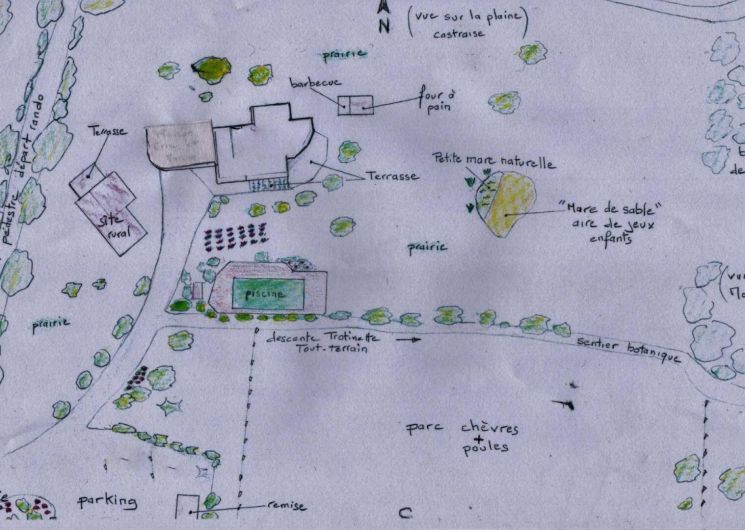 AN
(vue sur la plaine
castraise
prairie
barbecue
four à
pain
Terrasse
Terrasse
Petite mare naturelle
"Mare de sable"
aire de jeux
enfants
gîte
rural
pédestre départ rando
prairie
piscine
prairie
descente Trotinette
Tout-terrain
sentier botanique
parc chèvres
+
poules
parking
remise
C